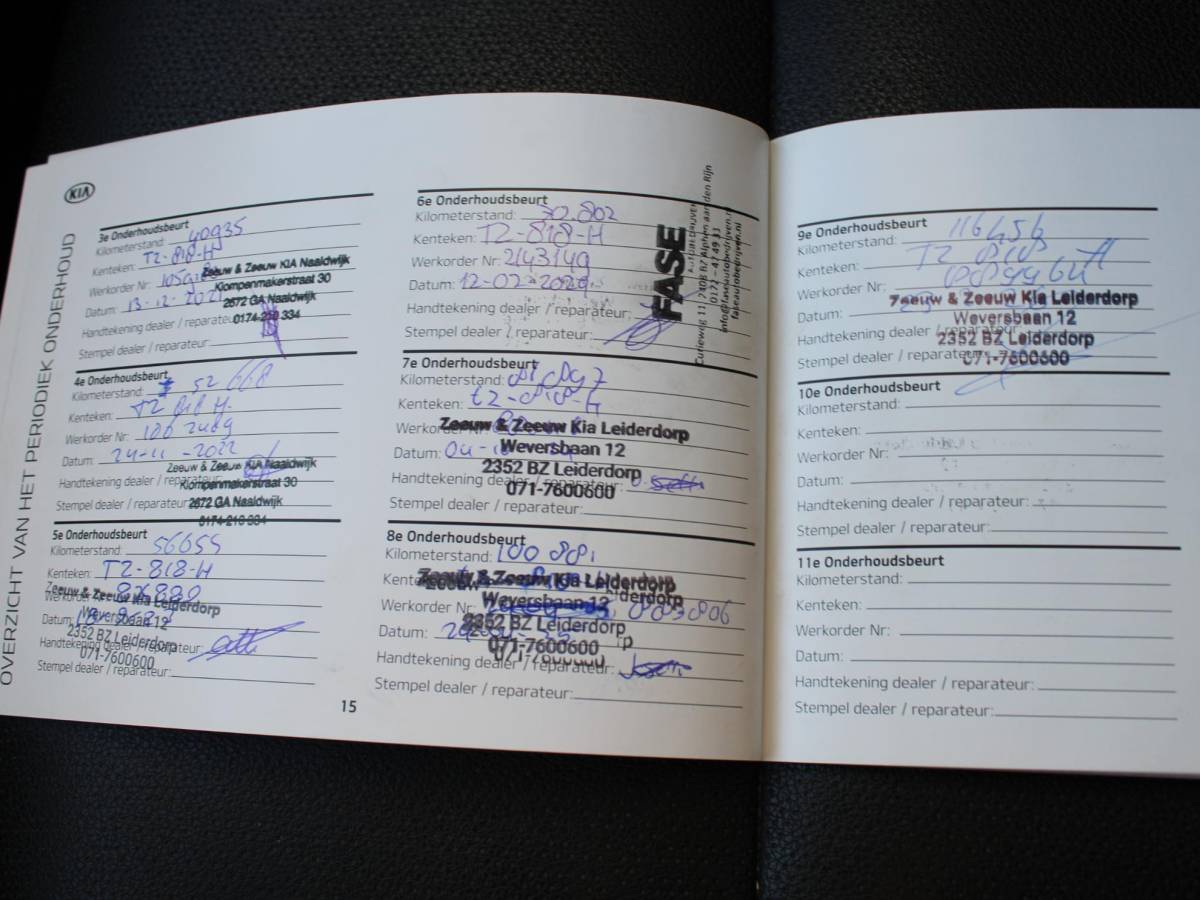 KIA
OVERZICHT VAN HET PERIODIEK ONDERHOUD
3e Onderhoudsbeurt
Kilometerstand: 40935
Kenteken: TZ-818-H
Werkorder Nr:
Datum: 13-12-2021
Handtekening dealer / reparateur:
Stempel dealer / reparateur:
Zeeuw & Zeeuw KIA Naaldwijk
Klompenmakerstraat 30
2672 GA Naaldwijk
0174-210 334
4e Onderhoudsbeurt
Kilometerstand: 52668
Kenteken: TZ 818 H
Werkorder Nr: 106 2489
Datum: 24-11-2022
Handtekening dealer / reparateur:
Stempel dealer / reparateur:
Zeeuw & Zeeuw KIA Naaldwijk
Klompenmakerstraat 30
2672 GA Naaldwijk
0174-210 334
5e Onderhoudsbeurt
Kilometerstand: 56655
Kenteken: TZ-818-H
Werkorder Nr:
Datum:
Handtekening dealer / reparateur:
Stempel dealer / reparateur:
Zeeuw & Zeeuw Kia Leiderdorp
Weversbaan 12
2352 BZ Leiderdorp
071-7600600
15
6e Onderhoudsbeurt
Kilometerstand:
Kenteken: TZ-818-H
Werkorder Nr: 2143149
Datum: 12-02-2024
Handtekening dealer / reparateur:
Stempel dealer / reparateur:
FASE
AUTOBEDRIJVEN
Curieweg 11, 2408 BZ Alphen aan den Rijn
info@faseautobedrijven.nl
faseautobedrijven.nl
7e Onderhoudsbeurt
Kilometerstand: 81897
Kenteken: TZ-818-H
Werkorder Nr:
Datum:
Handtekening dealer / reparateur:
Stempel dealer / reparateur:
Zeeuw & Zeeuw Kia Leiderdorp
Weversbaan 12
2352 BZ Leiderdorp
071-7600600
8e Onderhoudsbeurt
Kilometerstand: 100 881
Kenteken:
Werkorder Nr: 883806
Datum:
Handtekening dealer / reparateur:
Stempel dealer / reparateur:
Zeeuw & Zeeuw Kia Leiderdorp
Weversbaan 12
2352 BZ Leiderdorp
071-7600600
9e Onderhoudsbeurt
Kilometerstand: 116456
Kenteken: TZ 818 H
Werkorder Nr:
Datum:
Handtekening dealer / reparateur:
Stempel dealer / reparateur:
Zeeuw & Zeeuw Kia Leiderdorp
Weversbaan 12
2352 BZ Leiderdorp
071-7600600
10e Onderhoudsbeurt
Kilometerstand:
Kenteken:
Werkorder Nr:
Datum:
Handtekening dealer / reparateur:
Stempel dealer / reparateur:
11e Onderhoudsbeurt
Kilometerstand:
Kenteken:
Werkorder Nr:
Datum:
Handtekening dealer / reparateur:
Stempel dealer / reparateur: